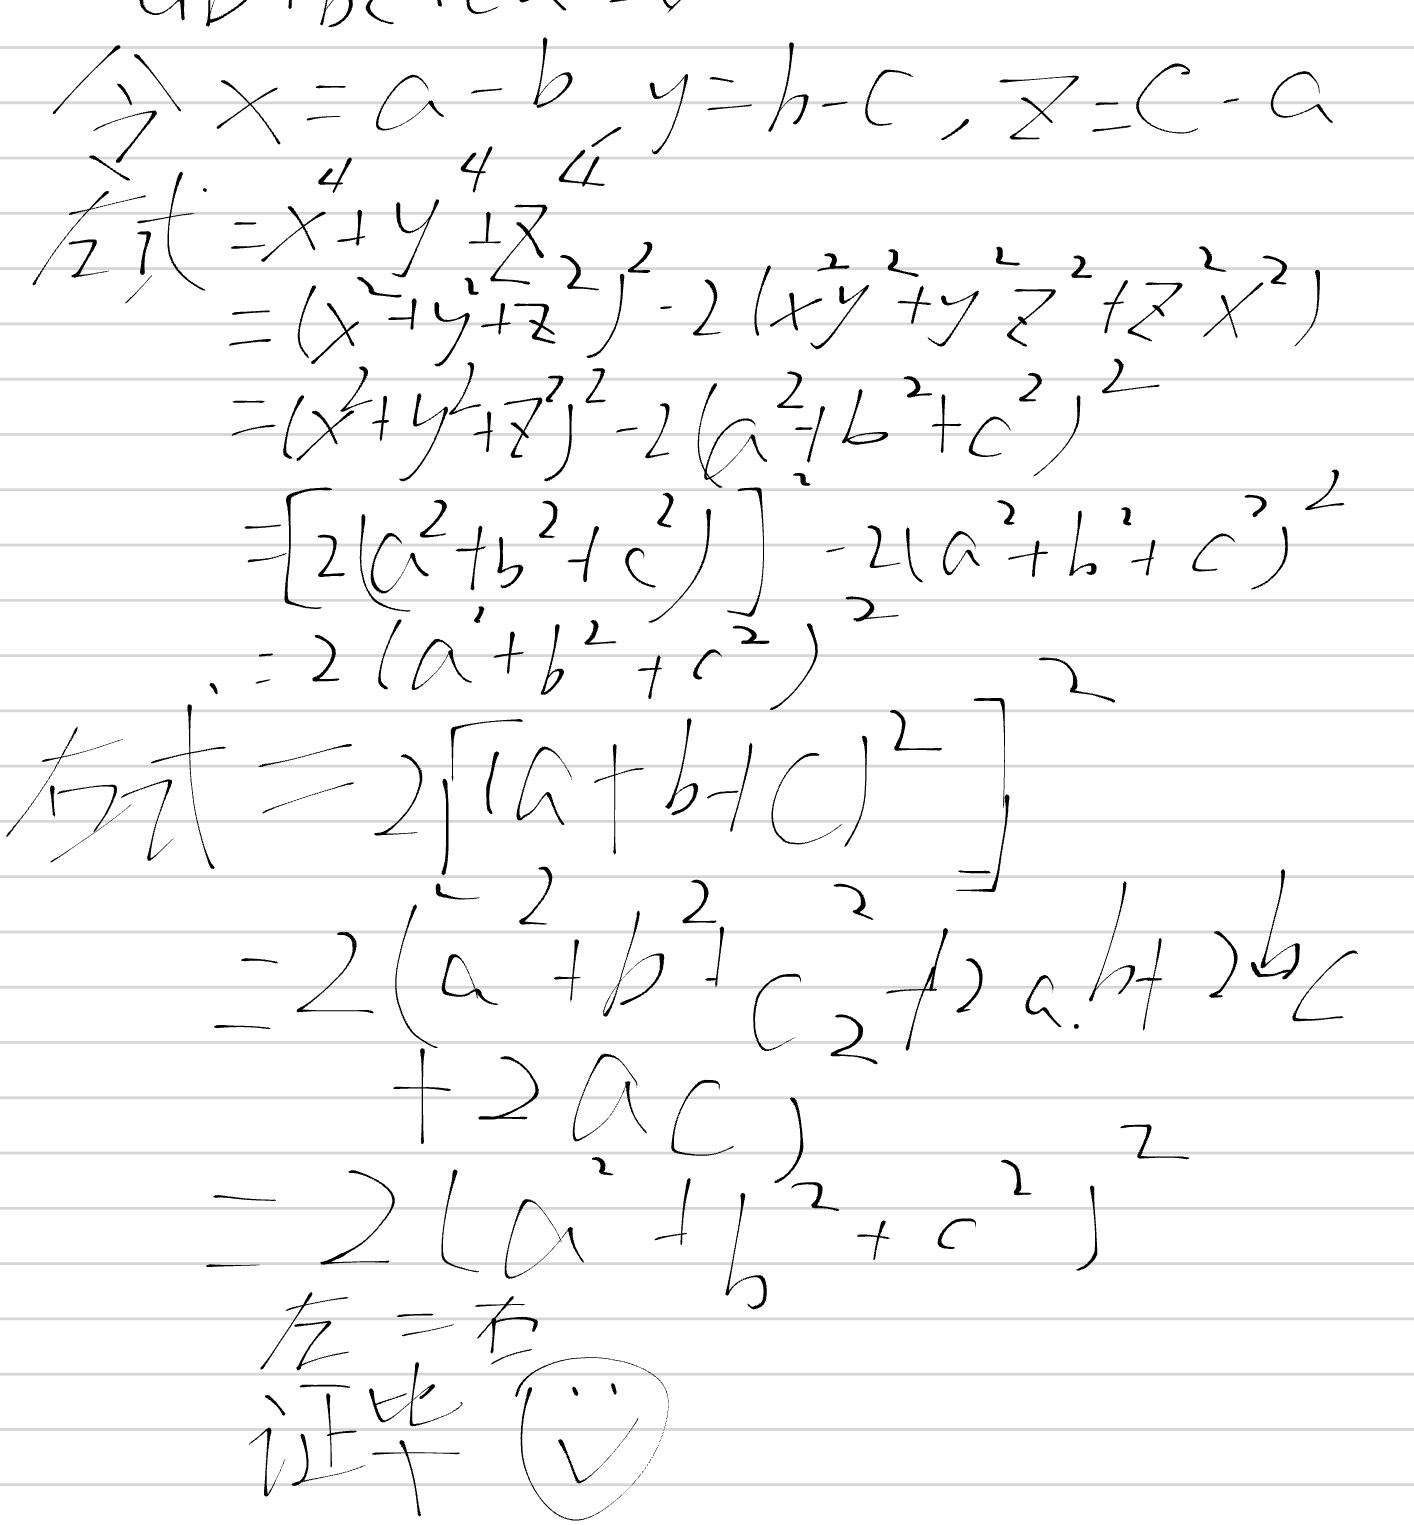 ab+bc+ca=0
令 x=a-b y=b-c, z=c-a
左式=x⁴+y⁴+z⁴
=(x²+y²+z²)²-2(x²y²+y²z²+z²x²)
=(x²+y²+z²)²-2(a²+b²+c²)²
=[2(a²+b²+c²)]²-2(a²+b²+c²)²
=2(a²+b²+c²)²
右式=2[(a+b+c)²]²
=2(a²+b²+c²+2ab+2bc
+2ac)²
=2(a²+b²+c²)²
左=右
证毕